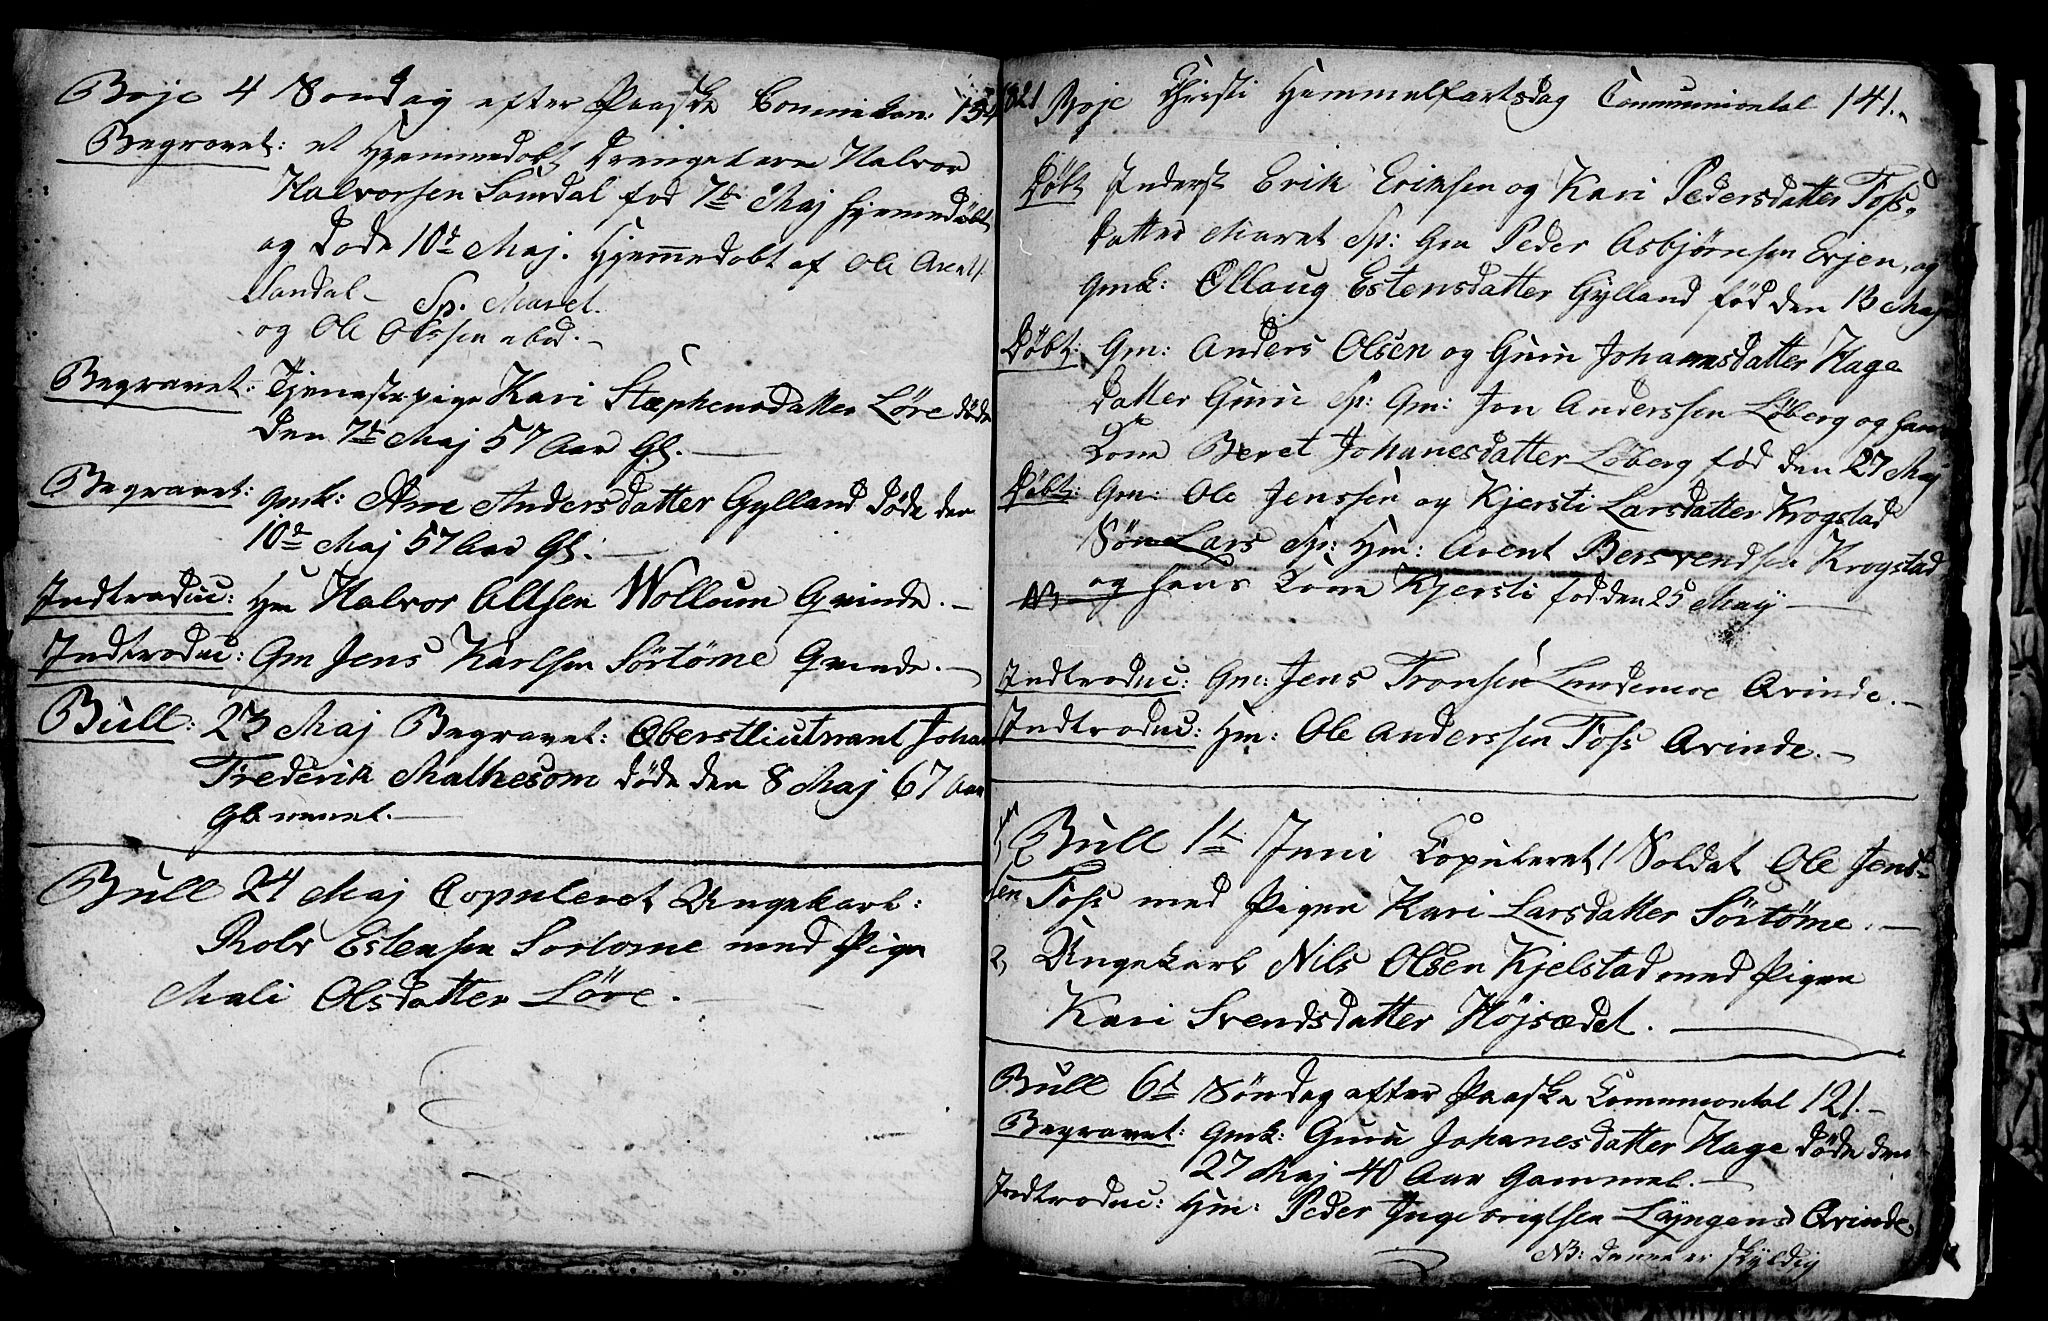 Boje 4 Søndag efter Paaske Commicken: 134
Begravet: et Hjemmedøbt Drengebarn Halvor
Halvorsen Samdal fod 7de Maj hjemmedøbt
og Døde 10de Maj. Hjemmedøbt af Ole Arentz.
Sandal - Sp. Maret.
og Ole Olssen abid. -
Begravet: Tjenestepige Kari Stæphensdatter Løre døde
den 7de Maj 57 Aar Gl. —
Begravet: Gmk: Ane Andersdatter Gylland Døde den
10de Maj 57 Aar Gl. —
Indtroduc: Hm Halvor Ollsen Wollum Qvinde. —
Indtroduc: Gm Jens Karlsen Sørtøme Qvinde. —
Bull: 23 Maj Begravet: Oberstlieutnant Johan
Frederik Mathesom døde den 8 Maj 67 Aar
—
Bull 24 Maj Copuleret Ungekarl:
Rolv Estensen Sortome med Pige
Mali Olsdatter Løre. —
1821 Boje Christi Hemmelfartsdag Communiontal 141.
Døbt Inderst Erik Eriksen og Kari Pedersdatter Foss
Datter Maret Sp: Gm Peder Asbjørnsen Evjen, og
Gmk: Ollaug Estensdatter Gylland fød den 13 Maj
Døbt: Gm: Anders Olsen og Guru Johannesdatter Hage
Datter Guru Sp: Gm: Jon Anderssen Løberg og hans
Kone Beret Johanesdatter Løberg fød den 27 Maj
Døbt: Gm: Ole Jenssen og Kjersti Larsdatter Krogstad
Søn Lars Sp: Hm: Arent Bersvendsen Krogstad
NB og hans Kone Kjersti fød den 25 Maij —
Indtroduc: Gm: Jens Tronsen Landemoe Qvinde. —
Indtroduc: Hm: Ole Anderssen Foss Qvinde. —
Bull 1te Juni Copuleret 1 Soldat Ole Jens-
sen Foss med Pigen Kari Larsdatter Sørtøme. —
2, Ungekarl Nils Olsen Kjelstad med Pigen
Kari Svendsdatter Højsædet. —
Bull 6te Søndag efter Paaske Communiontal 121. -
Begravet: Gmk: Guru Johanesdatter Hage Døde den
27 Maj 40 Aar Gammel. —
Indtroduc: Hm: Peder Ingebrigtsen Løyngens Qvinde.
NB: denne er skyldig